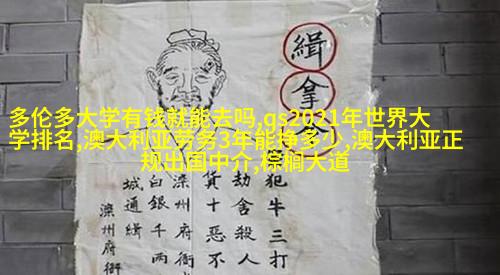 多伦多大学有钱就能去吗,qs2021年世界大
学排名,澳大利亚劳务3年能挣多少,澳大利亚正
规出国中介,棕榈大道
緝拿
犯牛三打
劫舍殺人
貨十惡不
滦州府衙
白銀千两
城通緝
滦州府衙